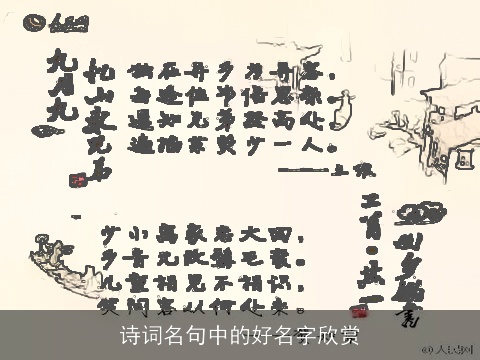 人民网
九月九
忆山东兄弟
独在异乡为异客，
每逢佳节倍思亲。
遥知兄弟登高处，
遍插茱萸少一人。
——王维
回乡偶书
少小离家老大回，
乡音无改鬓毛衰。
儿童相见不相识，
笑问客从何处来。
诗词名句中的好名字欣赏
@人民网